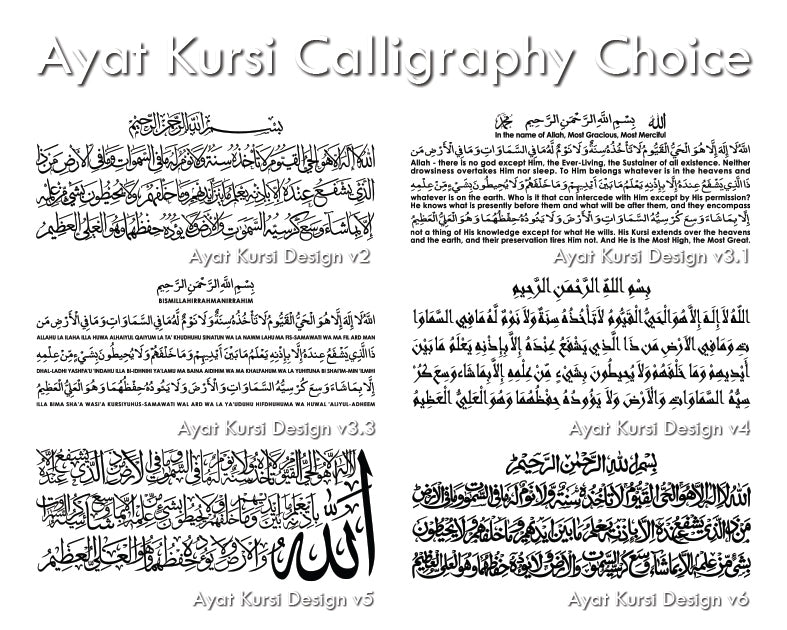 Ayat Kursi Calligraphy Choice
بِسْمِ اللهِ الرَّحْمٰنِ الرَّحِيْمِ
اللهُ لَا إِلٰهَ إِلَّا هُوَ الْحَيُّ الْقَيُّومُ لَا تَأْخُذُهُ سِنَةٌ وَلَا نَوْمٌ لَهُ مَا فِي السَّمٰوَاتِ وَمَا فِي الْأَرْضِ مَنْ ذَا
الَّذِي يَشْفَعُ عِنْدَهُ إِلَّا بِإِذْنِهِ يَعْلَمُ مَا بَيْنَ أَيْدِيهِمْ وَمَا خَلْفَهُمْ وَلَا يُحِيطُونَ بِشَيْءٍ مِنْ عِلْمِهِ
إِلَّا بِمَا شَاءَ وَسِعَ كُرْسِيُّهُ السَّمٰوٰتِ وَالْأَرْضَ وَلَا يَؤُدُهُ حِفْظُهُمَا وَهُوَ الْعَلِيُّ الْعَظِيمُ
Ayat Kursi Design v2
الله بِسْمِ اللَّهِ الرَّحْمَٰنِ الرَّحِيمِ محمد
In the name of Allah, Most Gracious, Most Merciful
اللَّهُ لَا إِلَٰهَ إِلَّا هُوَ الْحَيُّ الْقَيُّومُ لَا تَأْخُذُهُ سِنَةٌ وَلَا نَوْمٌ لَّهُ مَا فِي السَّمَاوَاتِ وَمَا فِي الْأَرْضِ مَن
Allah - there is no god except Him, the Ever-Living, the Sustainer of all existence. Neither
drowsiness overtakes Him nor sleep. To Him belongs whatever is in the heavens and
ذَا الَّذِي يَشْفَعُ عِندَهُ إِلَّا بِإِذْنِهِ يَعْلَمُ مَا بَيْنَ أَيْدِيهِمْ وَمَا خَلْفَهُمْ وَلَا يُحِيطُونَ بِشَيْءٍ مِّنْ عِلْمِهِ
whatever is on the earth. Who is it that can intercede with Him except by His permission?
He knows what is presently before them and what will be after them, and they encompass
إِلَّا بِمَا شَاءَ وَسِعَ كُرْسِيُّهُ السَّمَاوَاتِ وَالْأَرْضَ وَلَا يَئُودُهُ حِفْظُهُمَا وَهُوَ الْعَلِيُّ الْعَظِيمُ
not a thing of His knowledge except for what He wills. His Kursi extends over the heavens
and the earth, and their preservation tires Him not. And He is the Most High, the Most Great.
Ayat Kursi Design v3.1
بِسْمِ اللَّهِ الرَّحْمَٰنِ الرَّحِيمِ
BISMILLAHIRRAHMANIRRAHIM
اللَّهُ لَا إِلَٰهَ إِلَّا هُوَ الْحَيُّ الْقَيُّومُ لَا تَأْخُذُهُ سِنَةٌ وَلَا نَوْمٌ لَّهُ مَا فِي السَّمَاوَاتِ وَمَا فِي الْأَرْضِ مَن
ALLAHU LA ILAHA ILLA HUWA ALHAIYUL QAIYUM LA TA' KHUDHUHU SINATUN WA LA NAWM LAHU MA FIS-SAMAWATI WA MA FIL ARD MAN
ذَا الَّذِي يَشْفَعُ عِندَهُ إِلَّا بِإِذْنِهِ يَعْلَمُ مَا بَيْنَ أَيْدِيهِمْ وَمَا خَلْفَهُمْ وَلَا يُحِيطُونَ بِشَيْءٍ مِّنْ عِلْمِهِ
DHAL-LADHI YASHFA'U 'INDAHU ILLA BI-IDHNIHI YA'LAMU MA BAINA AIDIHIM WA MA KHALFAHUM WA LA YUHITUNA BI SHAI'IM-MIN 'ILMIHI
إِلَّا بِمَا شَاءَ وَسِعَ كُرْسِيُّهُ السَّمَاوَاتِ وَالْأَرْضَ وَلَا يَئُودُهُ حِفْظُهُمَا وَهُوَ الْعَلِيُّ الْعَظِيمُ
ILLA BIMA SHA'A WASI'A KURSIYUHUS-SAMAWATI WAL ARD WA LA YA'UDUHU HIFDHUHUMA WA HUWAL 'ALIYUL-ADHEEM
Ayat Kursi Design v3.3
بِسْمِ اللهِ الرَّحْمَنِ الرَّحِيمِ
اللهُ لَا إِلَهَ إِلَّا هُوَ الْحَيُّ الْقَيُّومُ لَا تَأْخُذُهُ سِنَةٌ وَلَا نَوْمٌ لَهُ مَا فِي السَّمَاوَا
تِ وَمَا فِي الْأَرْضِ مَن ذَا الَّذِي يَشْفَعُ عِنْدَهُ إِلَّا بِإِذْنِهِ يَعْلَمُ مَا بَيْنَ
أَيْدِيهِمْ وَمَا خَلْفَهُمْ وَلَا يُحِيطُونَ بِشَيْءٍ مِنْ عِلْمِهِ إِلَّا بِمَا شَاءَ وَسِعَ كُرْ
سِيُّهُ السَّمَاوَاتِ وَالْأَرْضَ وَلَا يَؤُودُهُ حِفْظُهُمَا وَهُوَ الْعَلِيُّ الْعَظِيمُ
Ayat Kursi Design v4
الله لا إله إلا هو الحي القيوم لا تأخذه سنة ولا نوم له ما في السموت وما في الأرض من ذا الذي يشفع عنده
إلا بإذنه يعلم ما بين أيديهم وما خلفهم ولا يحيطون بشيء من علمه إلا بما شاء وسع كرسيه السموت
والأرض ولا يؤده حفظهما وهو العلي العظيم
Ayat Kursi Design v5
بسم الله الرحمن الرحيم
الله لا إله إلا هو الحي القيوم لا تأخذه سنة ولا نوم له ما في السموت وما في الأرض
من ذا الذي يشفع عنده إلا بإذنه يعلم ما بين أيديهم وما خلفهم ولا يحيطون
بشيء من علمه إلا بما شاء وسع كرسيه السموت والأرض ولا يؤده حفظهما وهو العلي العظيم
Ayat Kursi Design v6